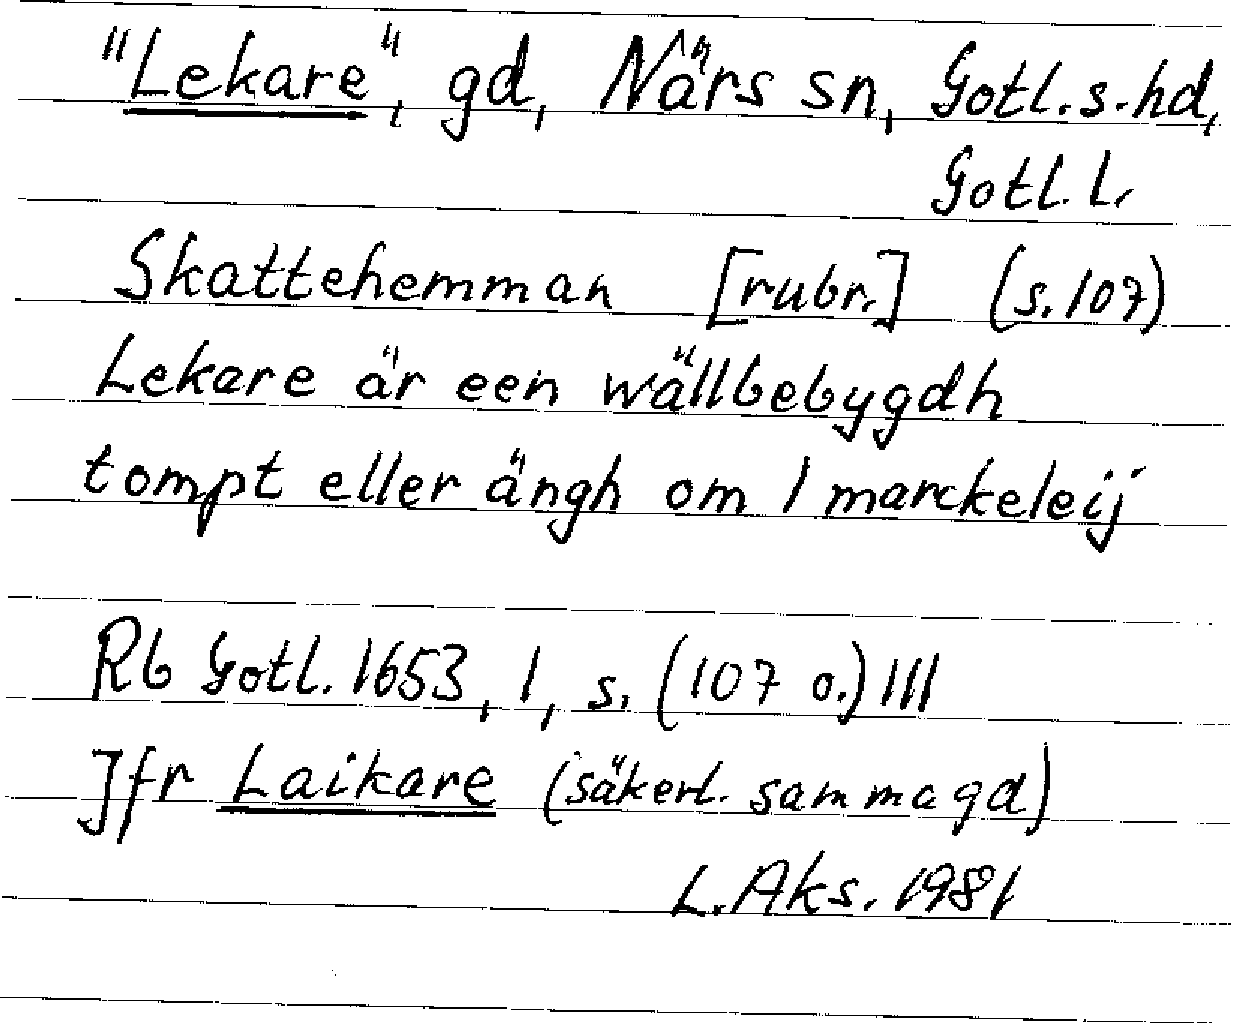 "Lekare", gd, Närs sn, Gotl.s.hd,
Gotl. l.
Skattehemman [rubr.] (s.107)
Lekare är een wällbebygdh
tompt eller ängh om 1 marckeleij
Rb Gotl. 1653, 1, s. (107 o.) 111
Jfr Laikare (säkerl. samma gd)
L. Aks. 1981